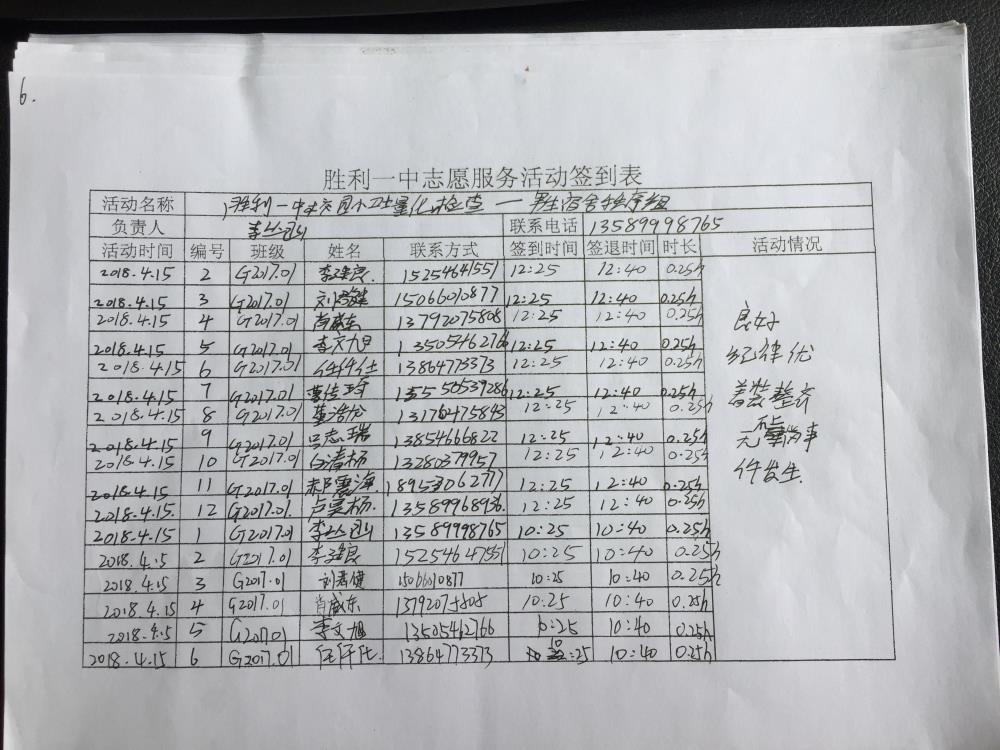 6.
胜利一中志愿服务活动签到表
活动名称 胜利一中校园卫生量化检查 — 男生宿舍秩序组
负责人 李 联系电话 13589998765
活动时间 编号 班级 姓名 联系方式 签到时间 签退时间 时长 活动情况
2018.4.15 2 G2017.01 李 15254641551 12:25 12:40 0.25h
2018.4.15 3 G2017.01 刘 15066010877 12:25 12:40 0.25h
2018.4.15 4 G2017.01 肖威东 13792075808 12:25 12:40 0.25h
2018.4.15 5 G2017.01 李文旭 1350546276 12:25 12:40 0.25h
2018.4.15 6 G2017.01 任仟仕 13864773373 12:25 12:40 0.25h
2018.4.15 7 G2017.01 12:25 12:40 0.25h
2018.4.15 8 G2017.01 董浩 13176475843 12:25 12:40 0.25h
2018.4.15 9 G2017.01 吕志瑞 13854666822 12:25 12:40 0.25h
2018.4.15 10 G2017.01 白清杨 13280379957 12:25 12:40 0.25h
2018.4.15 11 G2017.01 郝震海 12:25 12:40 0.25h
2018.4.15 12 G2017.01. 卢昊杨. 13589968936. 12:25 12:40 0.25h
2018.4.15 1 G2017.01 李 13589998765 10:25 10:40 0.25h
2018.4.15 2 G2017.01 李 10:25 10:40 0.25h
2018.4.15 3 G2017.01 刘君健 15066010877 10:25 10:40 0.25h
2018.4.15 4 G2017.01 肖威东 13792075808 10:25 10:40 0.25h
2018.4.15 5 G2017.01 李文旭 13505462766 10:25 10:40 0.25h
2018.4.15 6 G2017.01 任仟仕. 13864773373 10:25 10:40 0.25h
良好
纪律优
着装整齐
无 事
件发生.